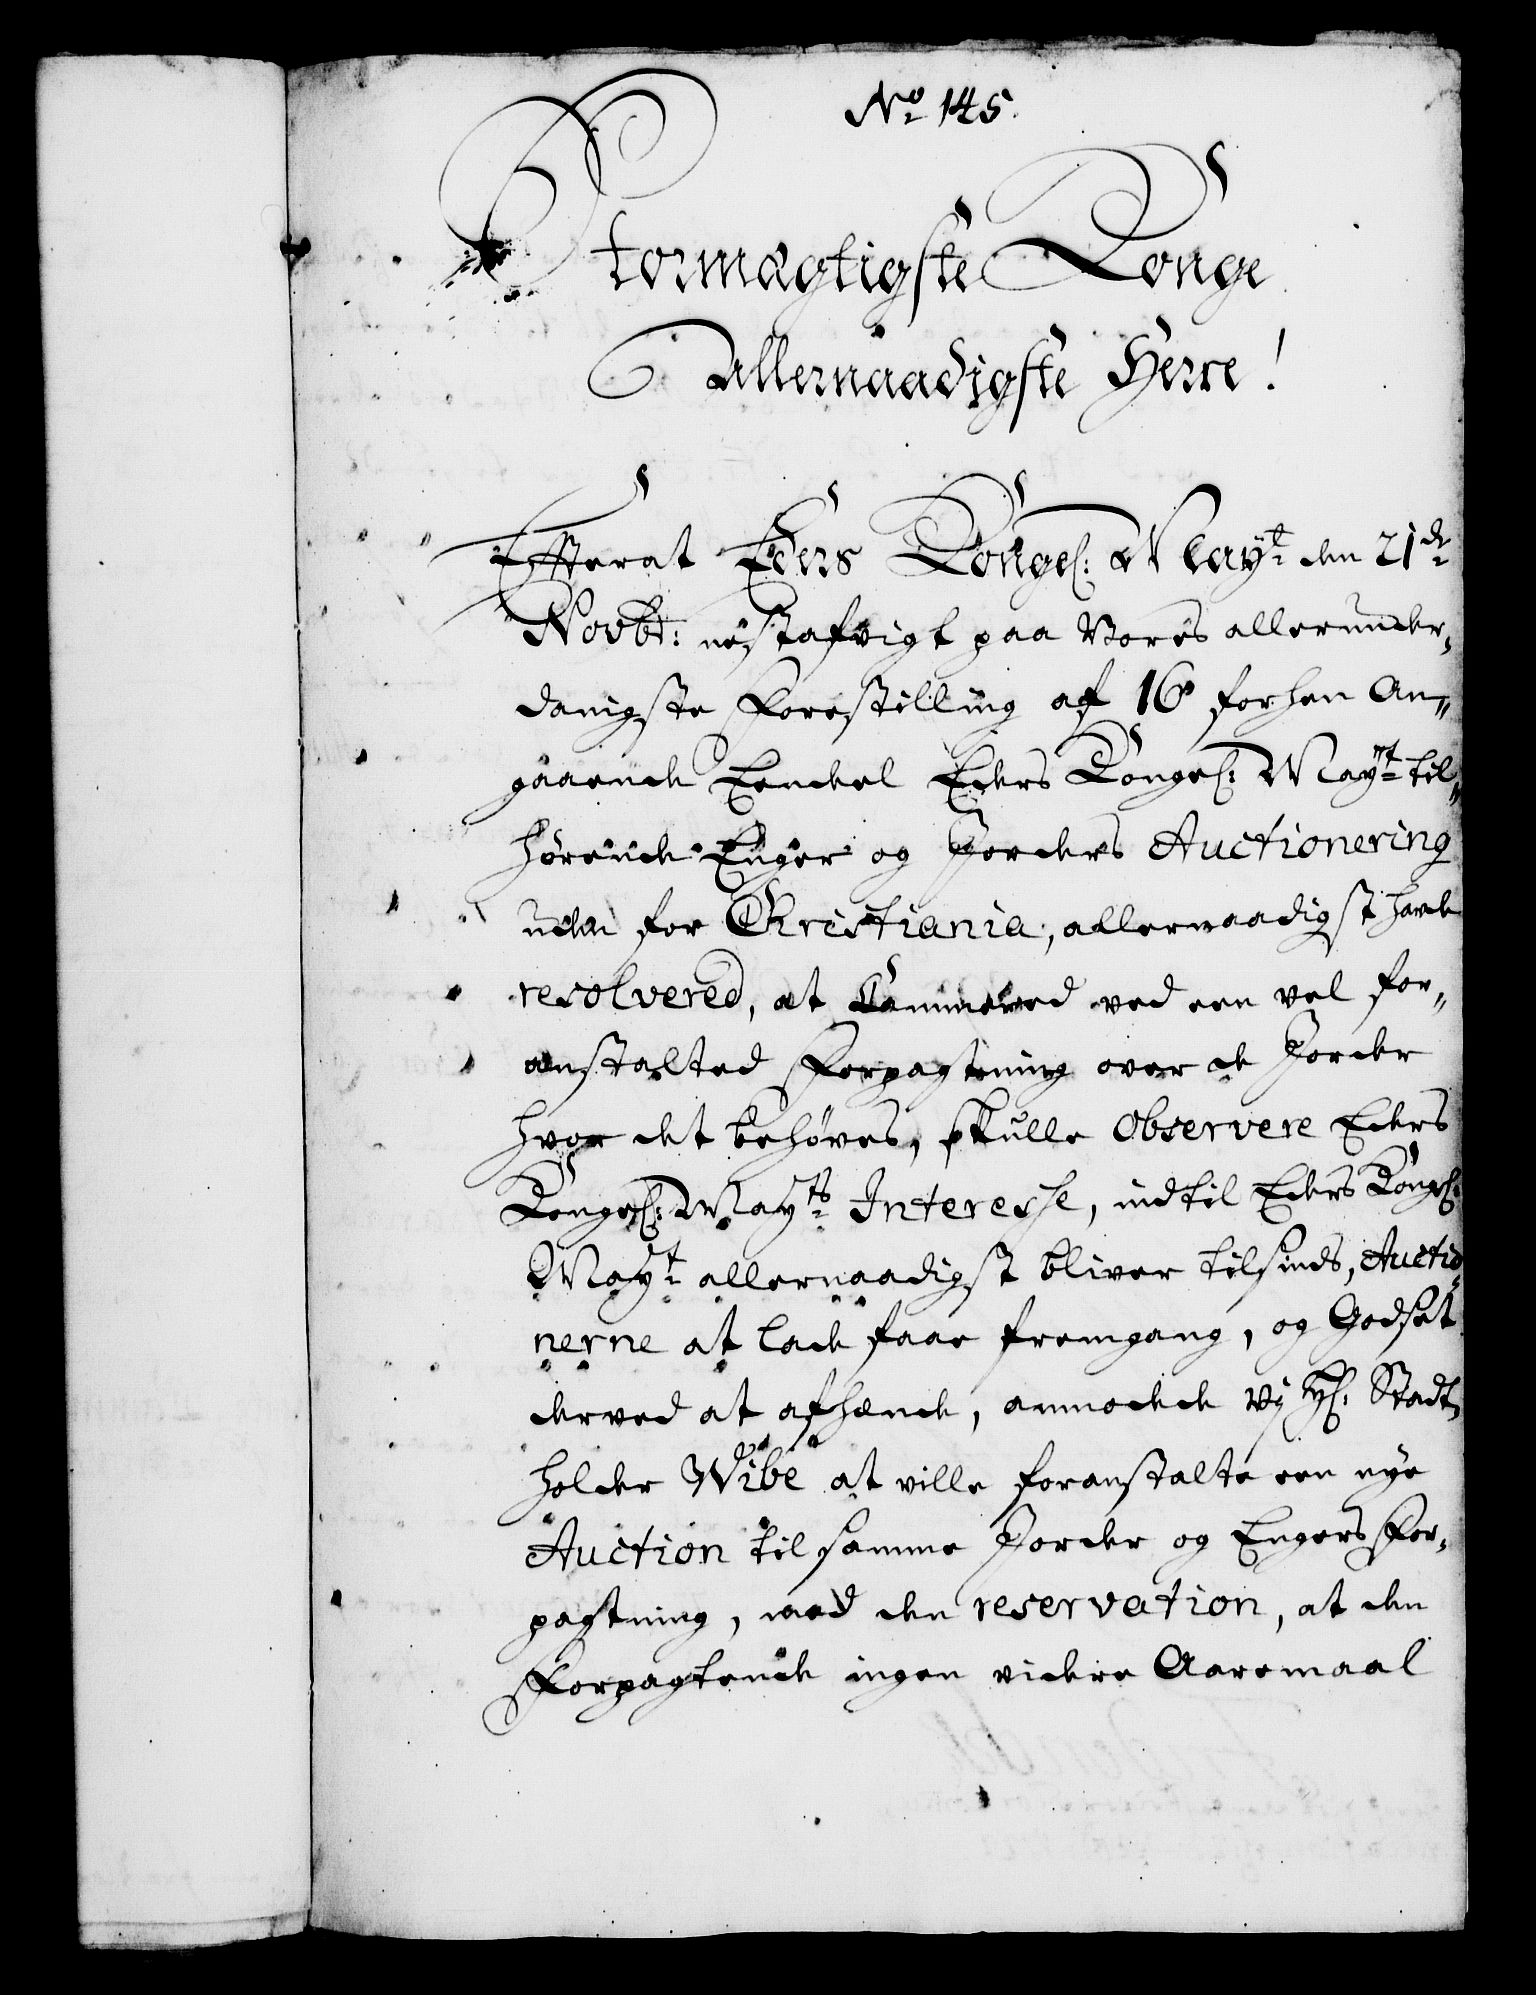 No 145.
Stormægtigste Konge
Allernaadigste Herre!
Effterat Eders Kongel: Mayt den 21de
Novbr: nestafvigt paa Vores allerunder,
danigste Forestilling af 16 forhen An„
gaaende Eendel Eders Kongel: Mayt til„
hørende Enger og Jorders Auctionering
uden for Christiania, allernaadigst hafde
resolvered, at Cammered ved een vel for„
anstalted Forpagtning over de Jorder
hvor det behøves, skulle observere Eders
Kongel: Mayts Interesse, indtil Eders Kongel:
Mayt allernaadigst bliver tilsinds, Auctio„
nerne at lade faae fremgang, og Godset
derved at afhænde, anmodede Vj Hl: Stadt,
holder Wibe at ville foranstalte een nye
Auction til samme Jorder og Engers For„
pagtning, med den reservation, at den
Forpagtende ingen videre Aaremaal